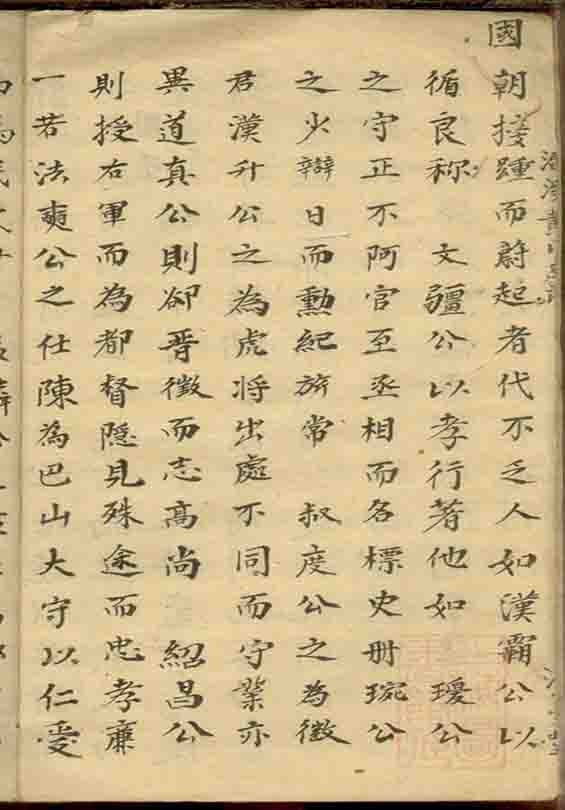 國
朝接踵而蔚起者代不乏人如漢霸公以
循良称 文彊公以孝行著他如 瓊公
之守正不阿官至丞相而名標史册琬公
之少辯日而勳紀旂常 叔度公之為徵
君漢升公之為虎将出處不同而守業亦
異道真公則卻晋徵而志高尚 紹昌公
則授右軍而為都督隠見殊途而忠孝亷
一若法奭公之仕陳為巴山大守以仁愛